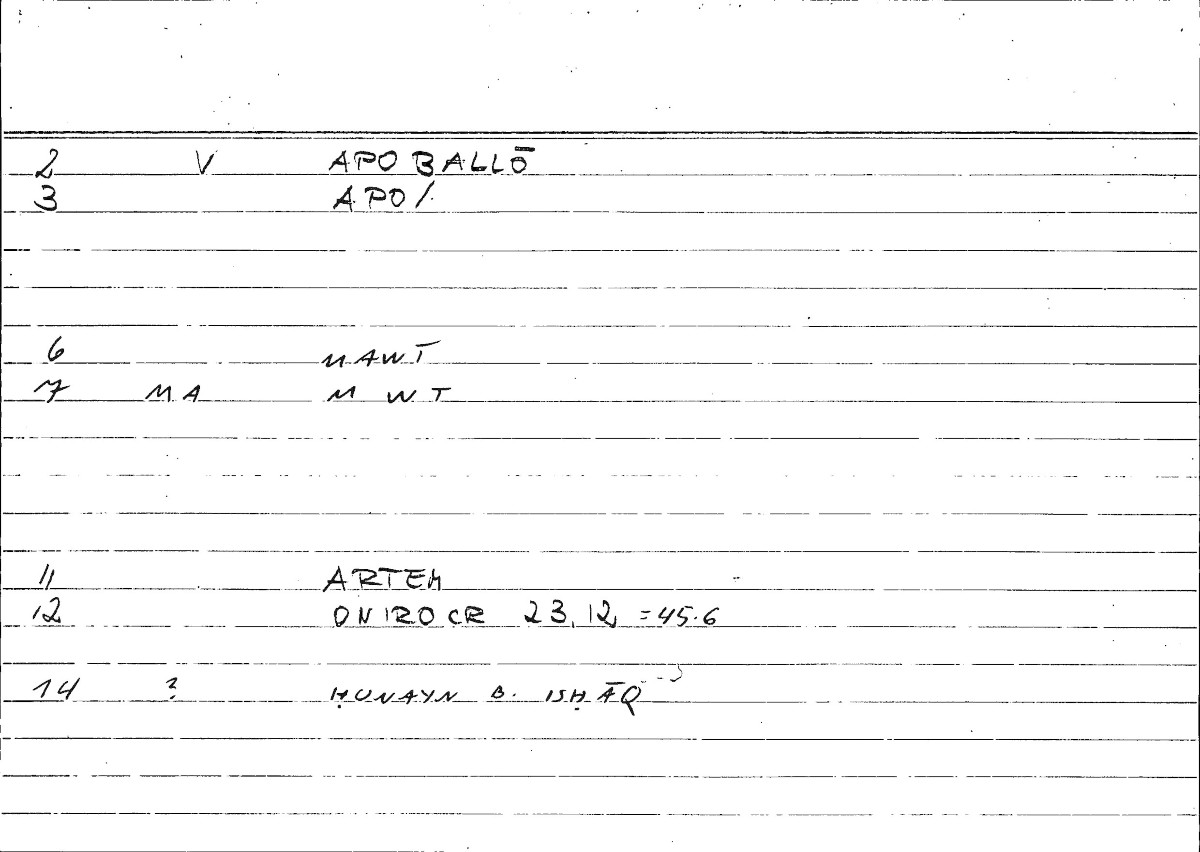 2 V APOBALLŌ
3 APO/
6 MAWT
7 MA M WT
11 ARTEM
12 ONIROCR 23,12, =45.6
14 ? ḤUNAYN B. ISḤĀQ